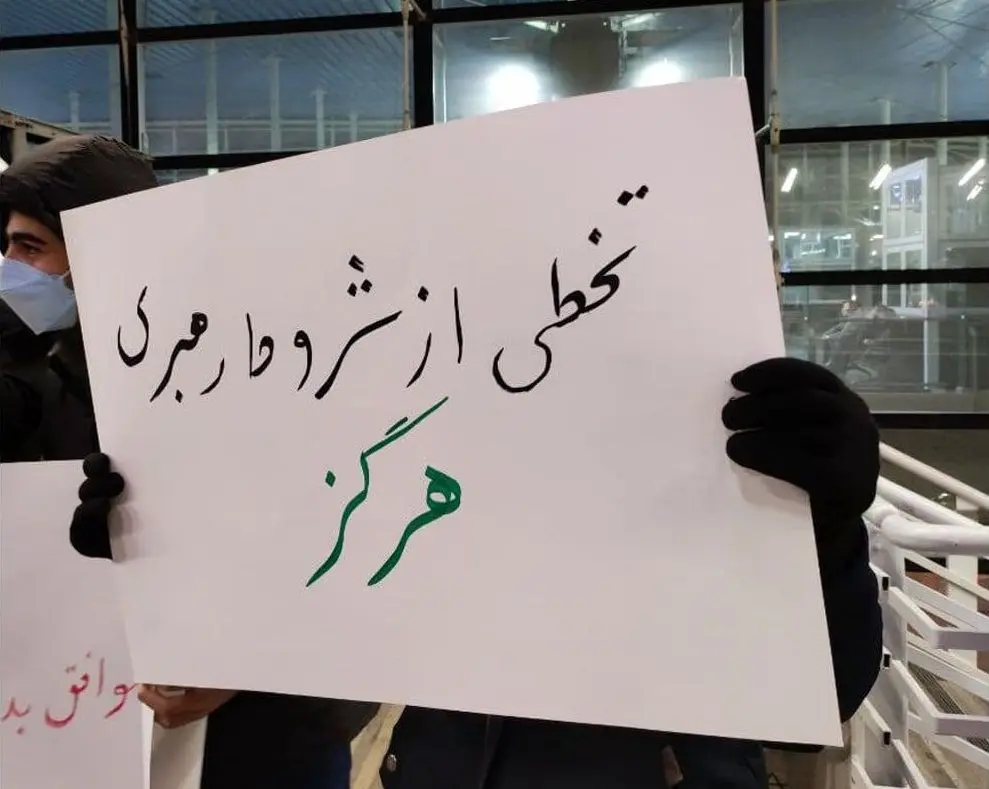 تخطی از شروط رهبری
هرگز
وافق بد